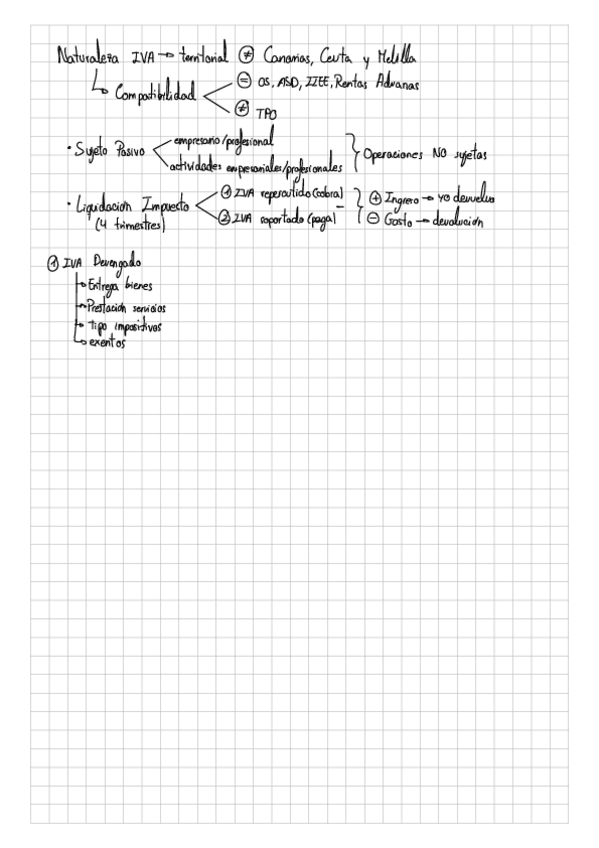 Naturaleza IVA → territorial ≠ Canarias, Ceuta y Melilla
↳ Compatibilidad
= OS, ASD, IIEE, Rentas Aduanas
≠ TPO
• Sujeto Pasivo
empresario/profesional
actividades empresariales/profesionales
} Operaciones NO sujetas
• Liquidación Impuesto
(4 trimestres)
① IVA repercutido (cobra)
② IVA soportado (paga)
−
+ Ingreso → yo devuelvo
− Gasto → devolución
① IVA Devengado
→ Entrega bienes
→ Prestación servicios
→ tipo impositivos
→ exentos